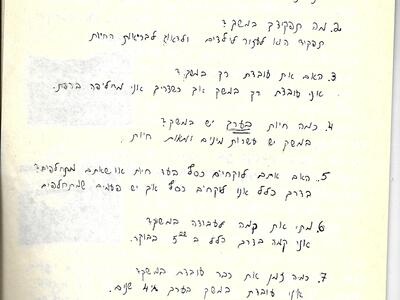 2. מה תפקידך במשק?
תפקידי הוא לעזור לילדים ולדאוג לבריאות החיות
3. האם את עובדת רק במשק?
אני עובדת רק במשק אך כשצריך אני מחליפה ברפת.
4. כמה חיות בערך יש במשק?
במשק יש עשרות מינים ומאות חיות
5. האם אתם לוקחים כסף בעד חיות או שאתם מתחלפים?
בדרך כלל אנו לוקחים כסף אך יש פעמים שמתחלפים
6. מתי את קמה לעבודה במשק?
אני קמה בדרך כלל ב 5 בבוקר.
7. כמה זמן את כבר עובדת במשק?
אני עובדת במשק בערך 4 שנים.